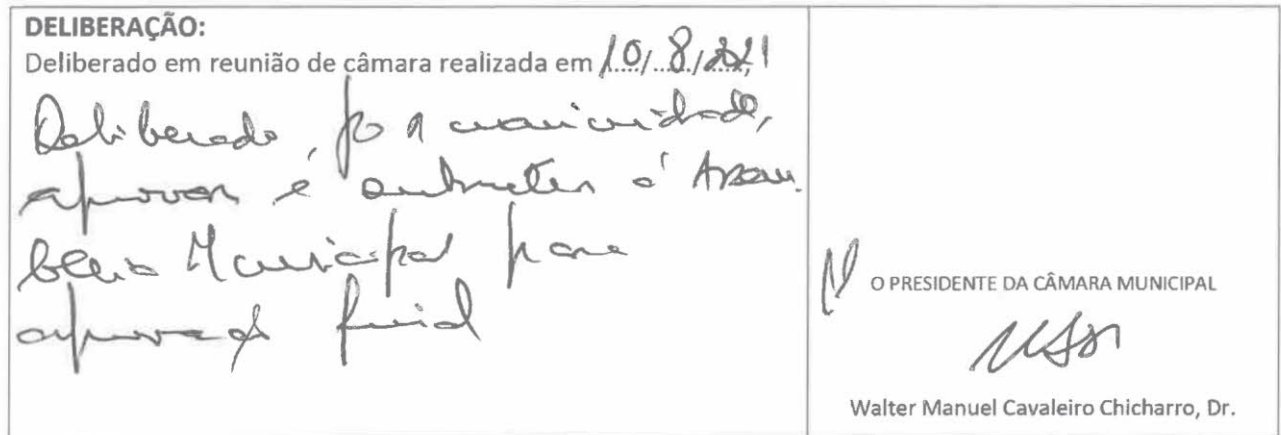 DELIBERAÇÃO:
Deliberado em reunião de câmara realizada em 10/ 8/2021
Deliberado, por unanimidade,
aprovar e submeter à Assem
bleia Municipal para
aprovação final
O PRESIDENTE DA CÂMARA MUNICIPAL
Walter Manuel Cavaleiro Chicharro, Dr.